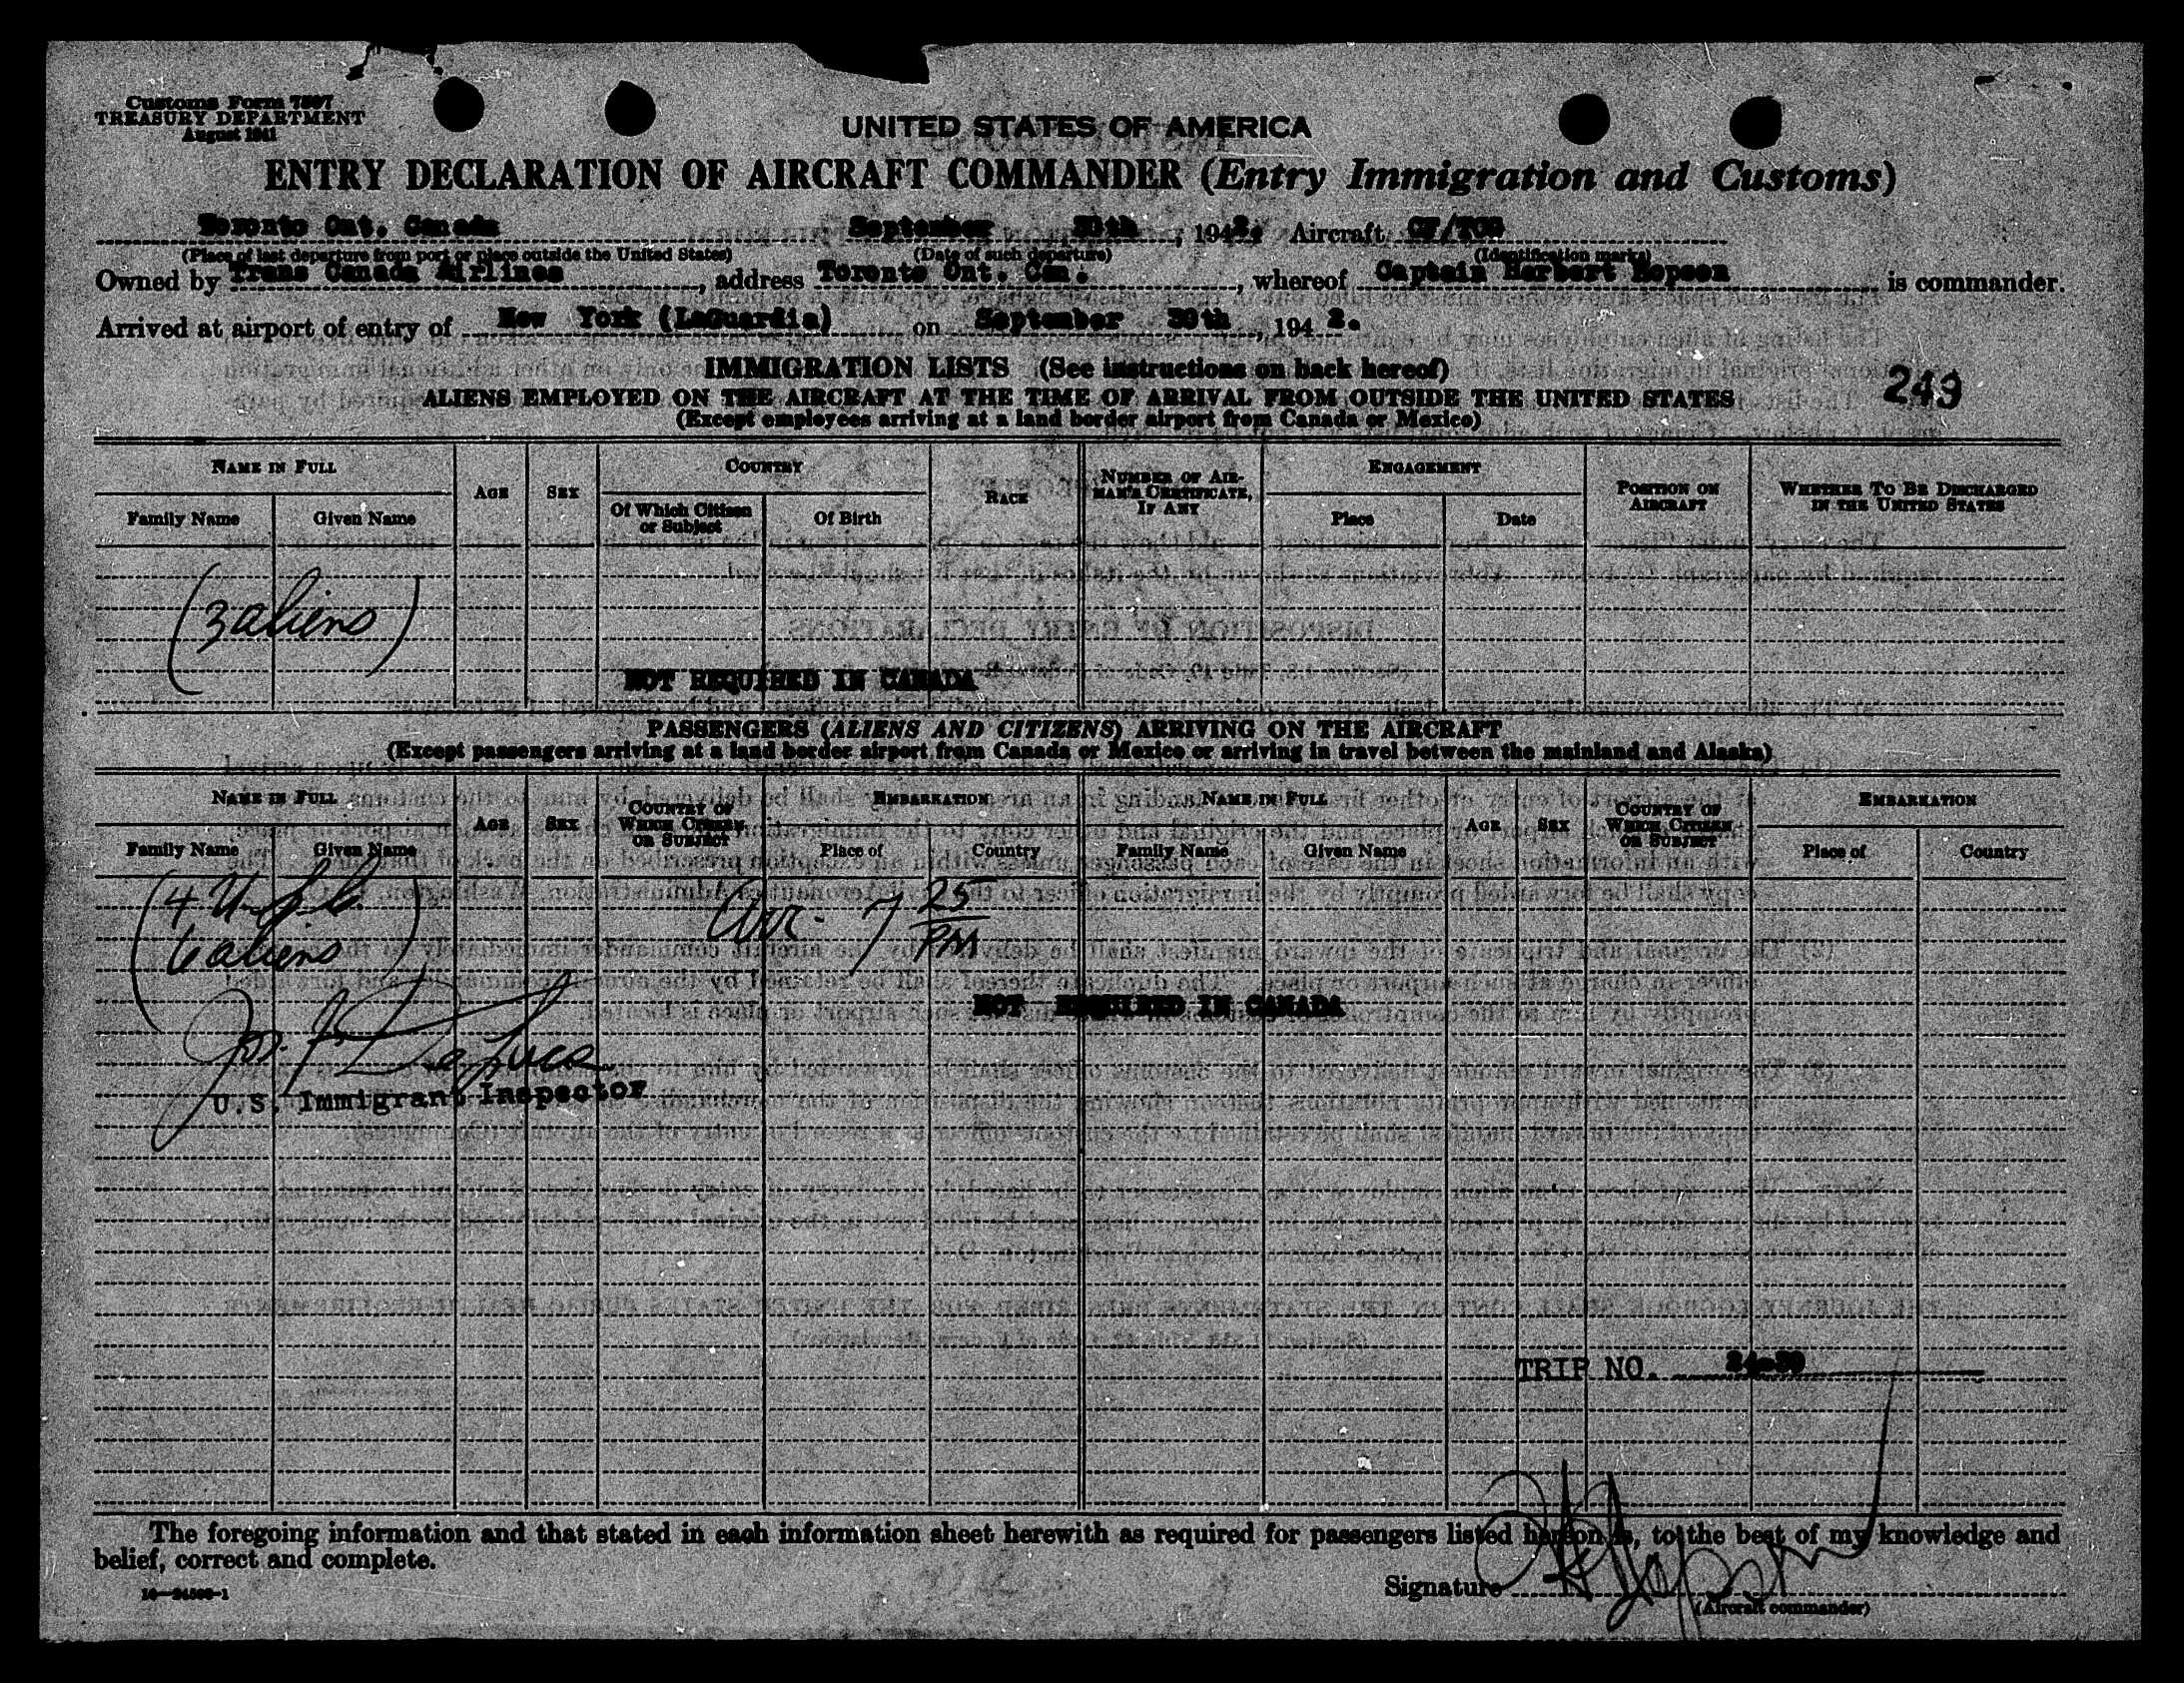 Customs Form 7507
TREASURY DEPARTMENT
August 1941
UNITED STATES OF AMERICA
ENTRY DECLARATION OF AIRCRAFT COMMANDER (Entry Immigration and Customs)
Toronto Ont. Canada September 30th, 1942. Aircraft
(Place of last departure from port or place outside the United States) (Date of such departure) (Identification marks)
Owned by Trans Canada Airlines, address Toronto Ont. Can., whereof Captain Herbert Hopson is commander.
Arrived at airport of entry of New York (LaGuardia) on September 30th, 1942.
IMMIGRATION LISTS (See instructions on back hereof)
249
ALIENS EMPLOYED ON THE AIRCRAFT AT THE TIME OF ARRIVAL FROM OUTSIDE THE UNITED STATES
(Except employees arriving at a land border airport from Canada or Mexico)
NAME IN FULL AGE SEX COUNTRY RACE NUMBER OF AIRMAN'S CERTIFICATE, IF ANY ENGAGEMENT POSITION ON AIRCRAFT WHETHER TO BE DISCHARGED IN THE UNITED STATES
Family Name Given Name Of Which Citizen or Subject Of Birth Place Date
(3 aliens)
NOT REQUIRED IN CANADA
PASSENGERS (ALIENS AND CITIZENS) ARRIVING ON THE AIRCRAFT
(Except passengers arriving at a land border airport from Canada or Mexico or arriving in travel between the mainland and Alaska)
NAME IN FULL AGE SEX COUNTRY OF WHICH CITIZEN OR SUBJECT EMBARKATION NAME IN FULL AGE SEX COUNTRY OF WHICH CITIZEN OR SUBJECT EMBARKATION
Family Name Given Name Place of Country Family Name Given Name Place of Country
(4 U.S.C.
6 aliens)
Arr. 7 25 PM
NOT REQUIRED IN CANADA
Jos. F. DeLuca
U.S. Immigrant Inspector
TRIP NO. 24-30
The foregoing information and that stated in each information sheet herewith as required for passengers listed hereon is, to the best of my knowledge and
belief, correct and complete.
Signature H Hopson
(Aircraft commander)